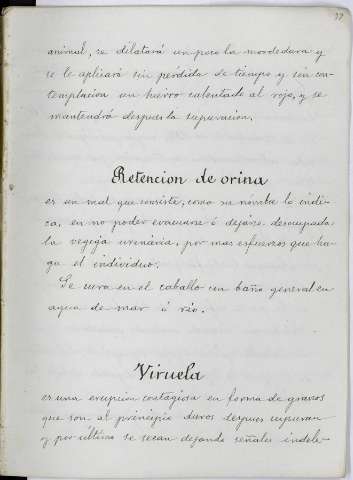 77
animal, se dilatará un poco la mordedura y
se le aplicará sin pérdida de tiempo y sin con-
templacion un hierro calentado al rojo, y se
mantendrá despues la supuracion.
Retencion de orina
es un mal que consiste, como su nombre lo indi-
ca, en no poder evacuarse ó dejarse desocupada
la vegiga urinária, por mas esfuerzos que ha-
ga el individuo.
Se cura en el caballo un baño general en
agua de mar ó rio.
Viruela
es una erupcion contagiosa en forma de granos
que son al principio duros despues supuran
y por último se secan dejando señales indele-